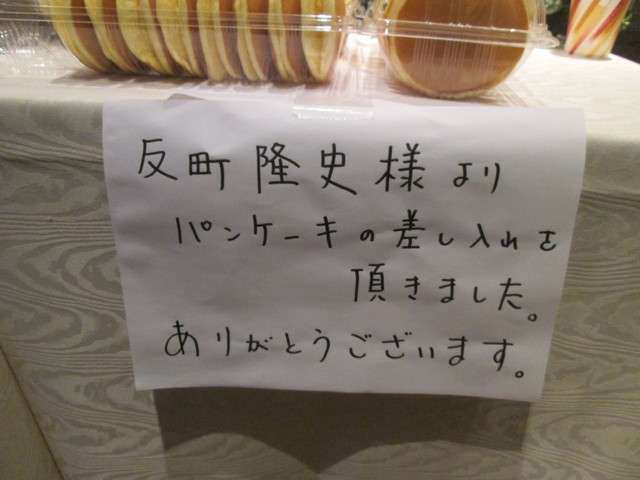 反町隆史様より
パンケーキの差し入れを
頂きました。
ありがとうございます。